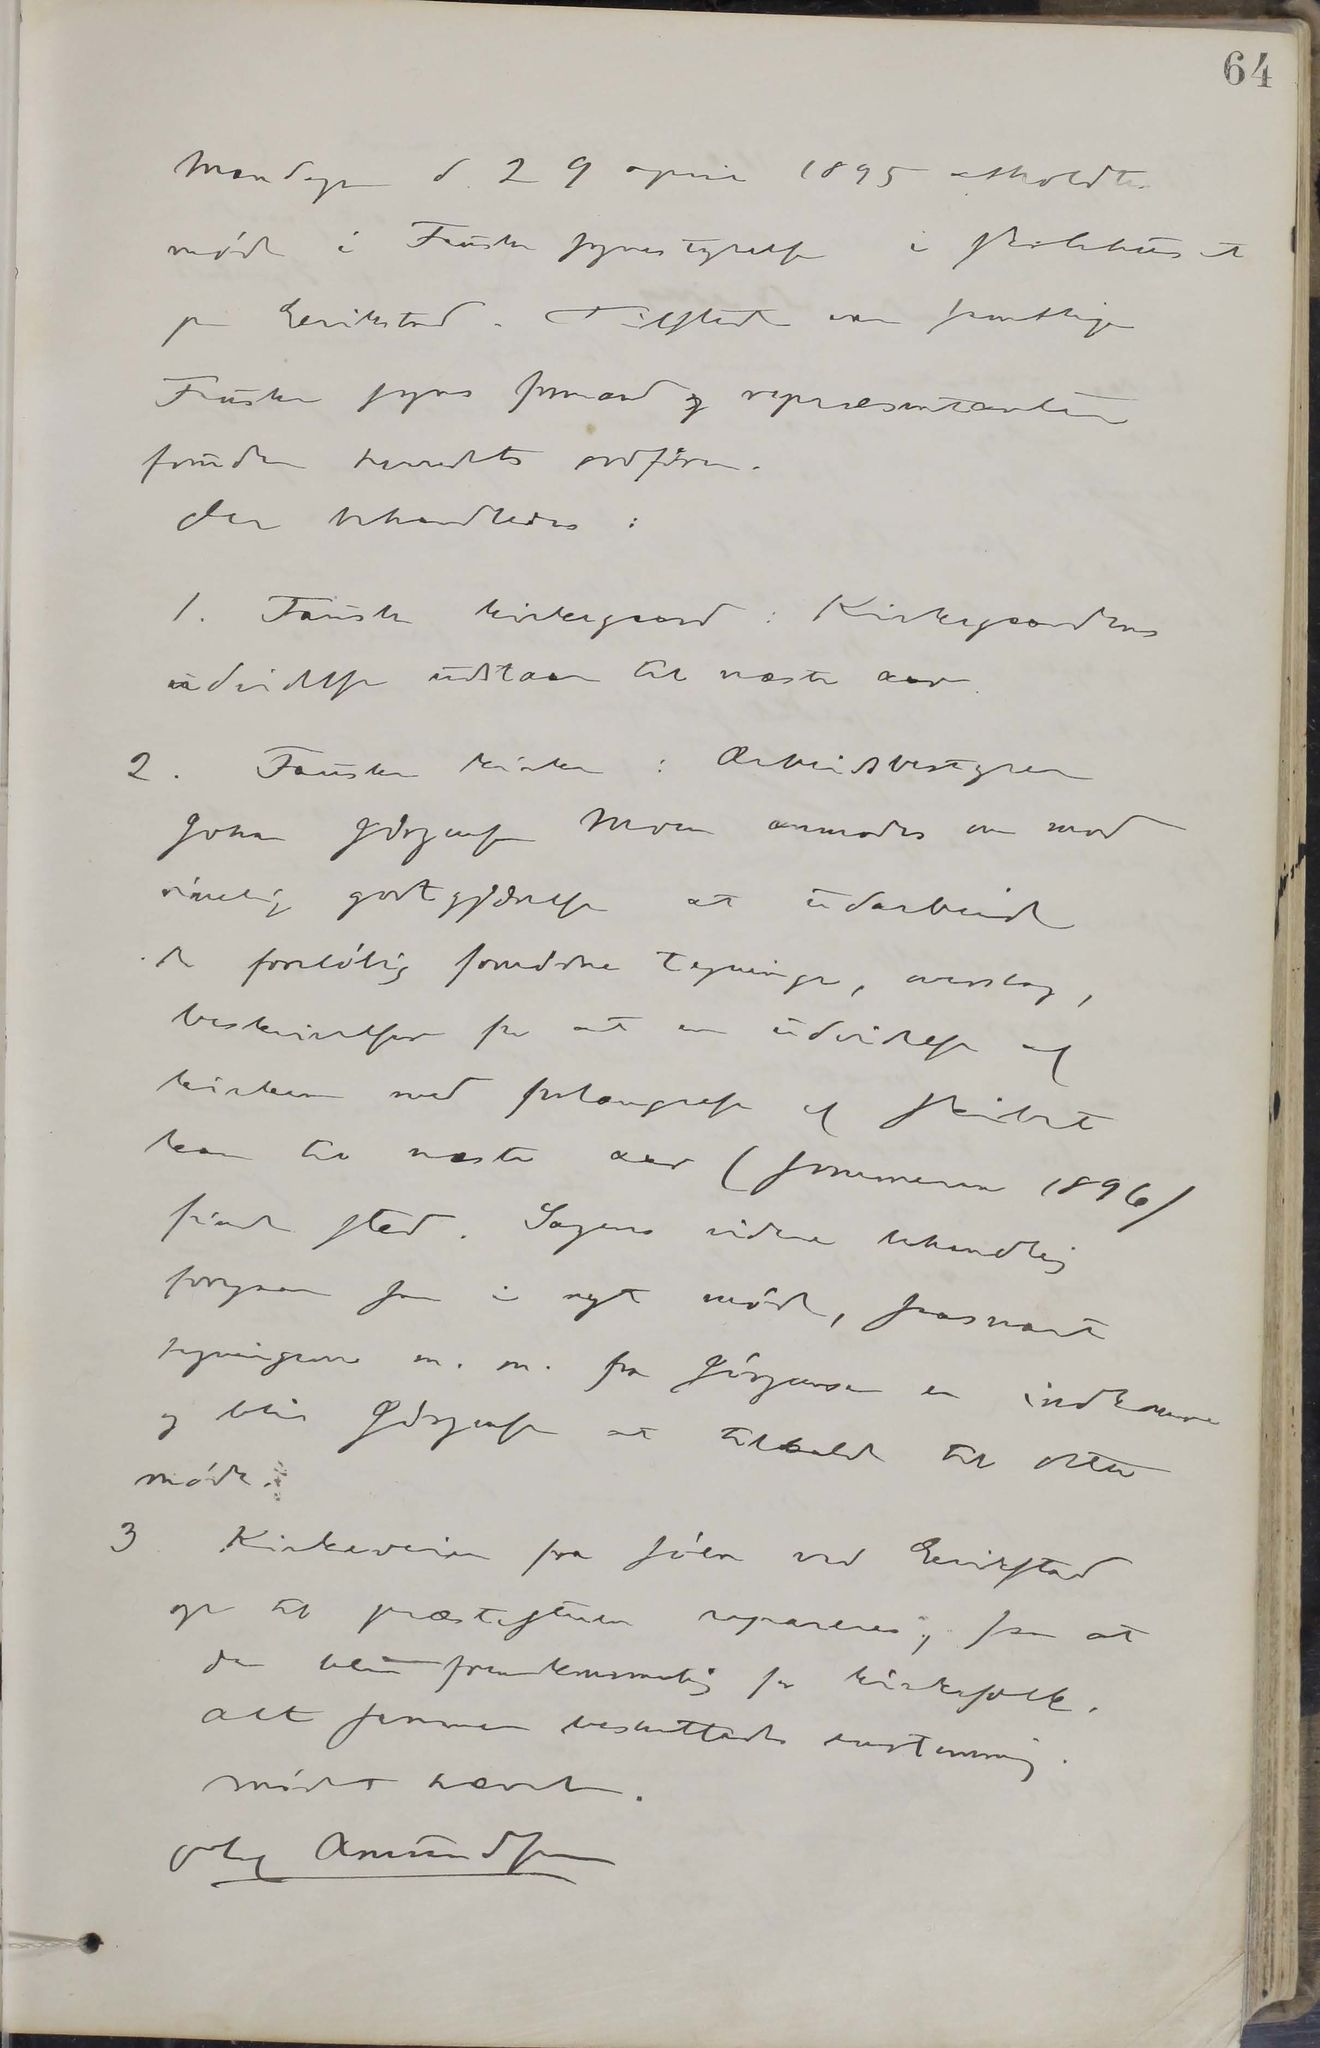 64
Mandagen d. 29 april 1895 afholdtes
møde i Fauske sognestyrelse i skolehuset
paa Erikstad. Tilstede var samtlige
Fauske sogns formænd og repræsentanter
foruden herredets ordfører.
Der behandledes:
1. Fauske kirkegaard: Kirkegaardens
udvidelse udstaar til næste aar.
2. Fauske kirke: Arbeidsbestyrer
Johan Jørgensen Moen anmodes om mod
rimelig godtgjørelse at udarbeide
de foreløbig fornødne tegninger, overslag,
beskrivelser for at en udvidelse af
kirken med forlængelse af skibet
kan til næste aar (sommeren 1896)
finde sted. Sagens videre behandling
foregaar saa i nyt møde, saasnart
tegningerne m. m. fra Jørgensen er indkomne
og blir Jørgensen at tilkalde til dette
møde.
3 Kirkeveien fra sjøen ved Erikstad
op til præstestuen repareres, saa at
den blir fremkommelig for kirkefolk.
Alt sammen besluttedes enstemmig.
Mødet hævet.
Amundsen